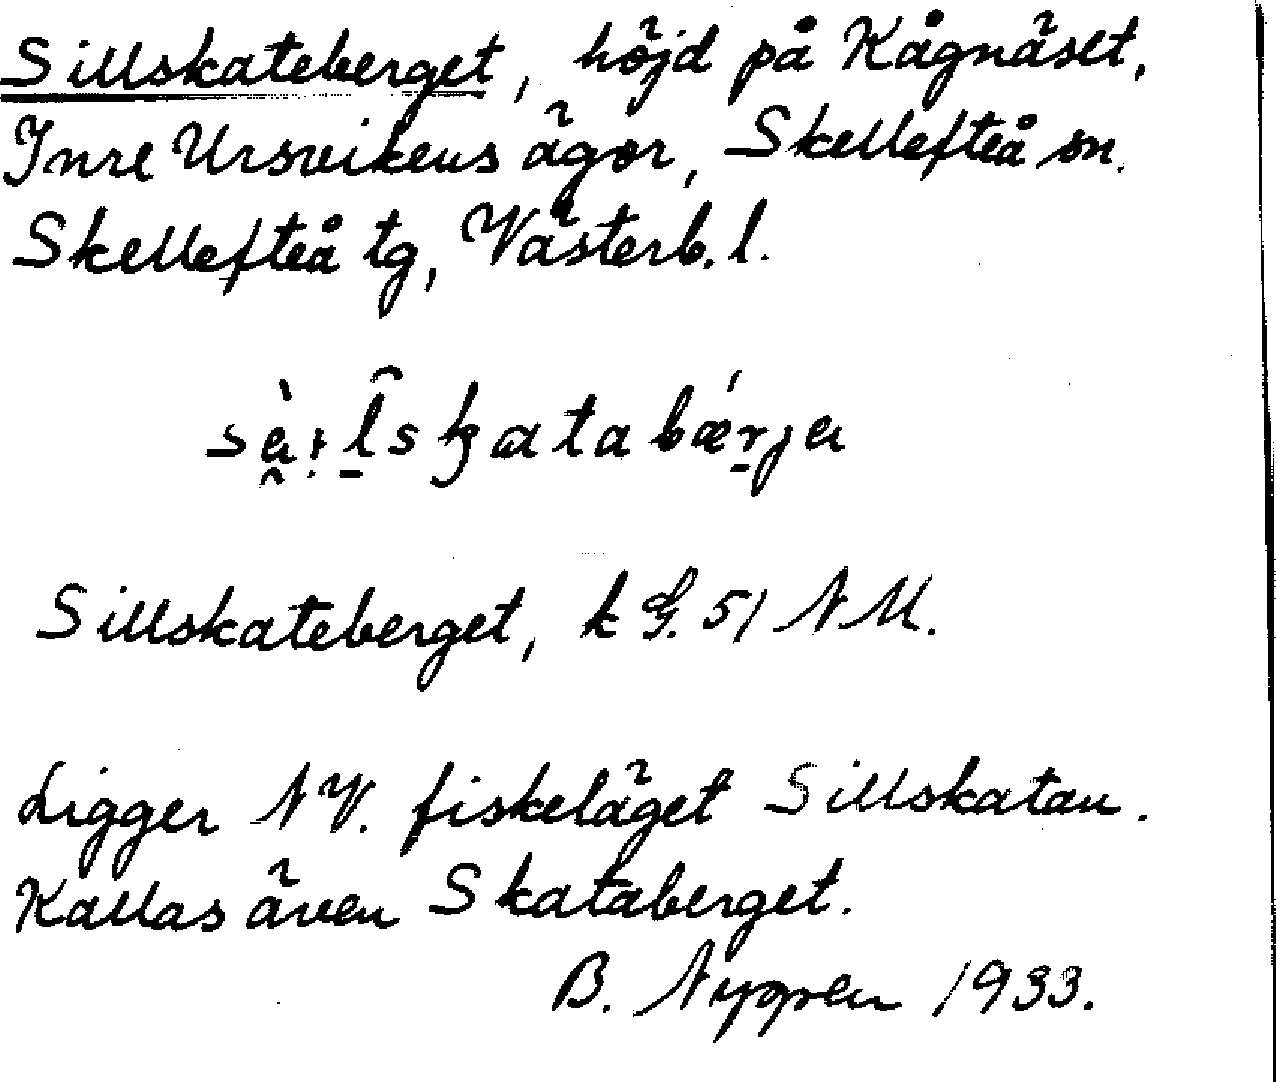 Sillskateberget, höjd på Kågnäset,
Inre Ursvikens ägor, Skellefteå sn.
Skellefteå tg, Västerb. l.
Sillskateberget, k G. 51 N M.
Ligger NV. fiskeläget Sillskatan.
Kallas även Skataberget.
B. Nygren 1933.